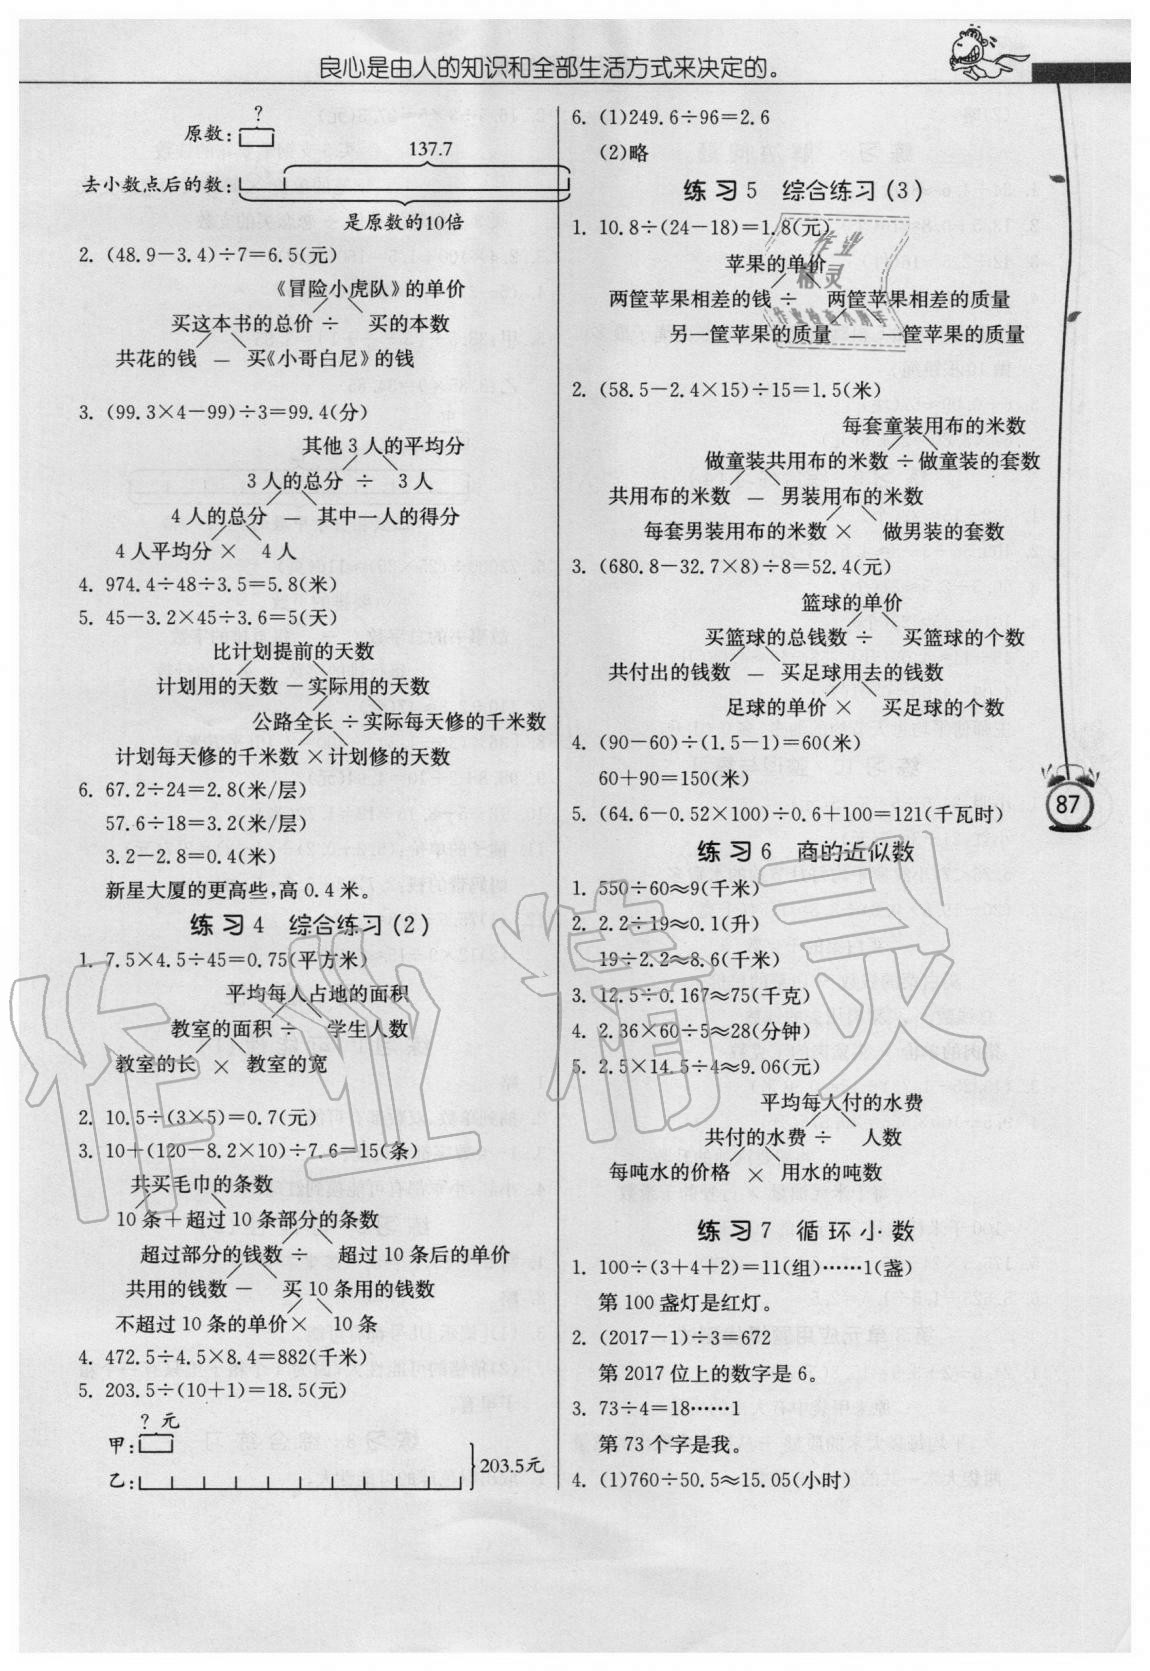 良心是由人的知识和全部生活方式来决定的。
?
原数:
137.7
去小数点后的数:
是原数的10倍
2. (48.9－3.4)÷7=6.5(元)
《冒险小虎队》的单价
买这本书的总价 ÷ 买的本数
共花的钱 － 买《小哥白尼》的钱
3. (99.3×4－99)÷3=99.4(分)
其他 3 人的平均分
3 人的总分 ÷ 3 人
4 人的总分 － 其中一人的得分
4 人平均分 × 4 人
4. 974.4÷48÷3.5=5.8(米)
5. 45－3.2×45÷3.6=5(天)
比计划提前的天数
计划用的天数 － 实际用的天数
公路全长 ÷ 实际每天修的千米数
计划每天修的千米数 × 计划修的天数
6. 67.2÷24=2.8(米/层)
57.6÷18=3.2(米/层)
3.2－2.8=0.4(米)
新星大厦的更高些,高 0.4 米。
练习 4 综合练习(2)
1. 7.5×4.5÷45=0.75(平方米)
平均每人占地的面积
教室的面积 ÷ 学生人数
教室的长 × 教室的宽
2. 10.5÷(3×5)=0.7(元)
3. 10+(120－8.2×10)÷7.6=15(条)
共买毛巾的条数
10 条＋超过 10 条部分的条数
超过部分的钱数 ÷ 超过 10 条后的单价
共用的钱数 － 买 10 条用的钱数
不超过 10 条的单价× 10 条
4. 472.5÷4.5×8.4=882(千米)
5. 203.5÷(10+1)=18.5(元)
? 元
甲:
乙:
203.5元
6. (1)249.6÷96=2.6
(2)略
练习 5 综合练习(3)
1. 10.8÷(24－18)=1.8(元)
苹果的单价
两筐苹果相差的钱 ÷ 两筐苹果相差的质量
另一筐苹果的质量 － 一筐苹果的质量
2. (58.5－2.4×15)÷15=1.5(米)
每套童装用布的米数
做童装共用布的米数 ÷ 做童装的套数
共用布的米数 － 男装用布的米数
每套男装用布的米数 × 做男装的套数
3. (680.8－32.7×8)÷8=52.4(元)
篮球的单价
买篮球的总钱数 ÷ 买篮球的个数
共付出的钱数 － 买足球用去的钱数
足球的单价 × 买足球的个数
4. (90－60)÷(1.5－1)=60(米)
60+90=150(米)
5. (64.6－0.52×100)÷0.6+100=121(千瓦时)
练习 6 商的近似数
1. 550÷60≈9(千米)
2. 2.2÷19≈0.1(升)
19÷2.2≈8.6(千米)
3. 12.5÷0.167≈75(千克)
4. 2.36×60÷5≈28(分钟)
5. 2.5×14.5÷4≈9.06(元)
平均每人付的水费
共付的水费 ÷ 人数
每吨水的价格 × 用水的吨数
练习 7 循环小数
1. 100÷(3+4+2)=11(组)……1(盏)
第 100 盏灯是红灯。
2. (2017－1)÷3=672
第 2017 位上的数字是 6。
3. 73÷4=18……1
第 73 个字是我。
4. (1)760÷50.5≈15.05(小时)
87
作业
精灵
作业精灵